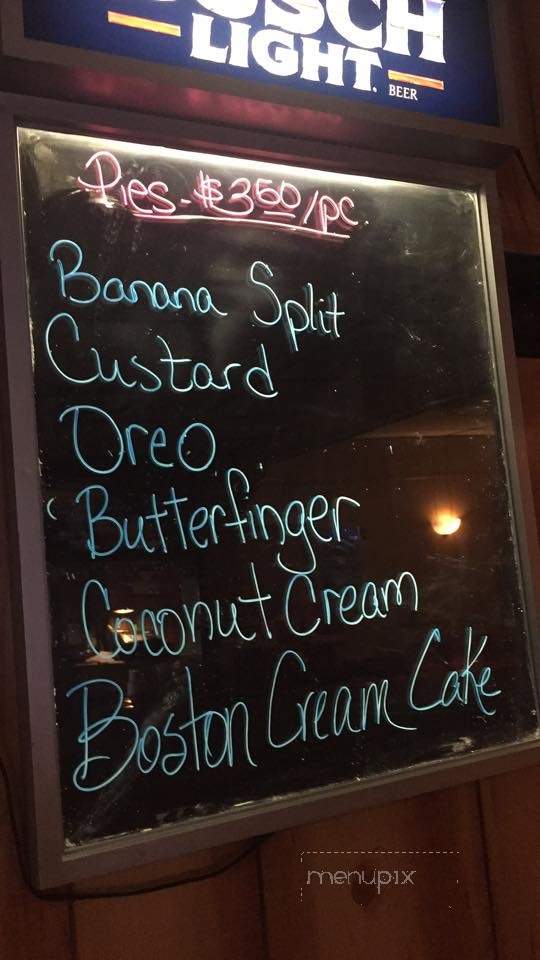 BUSCH
LIGHT.
BEER
Pies - $3.50/pc.
Banana Split
Custard
Oreo
Butterfinger
Coconut Cream
Boston Cream Cake
menupix